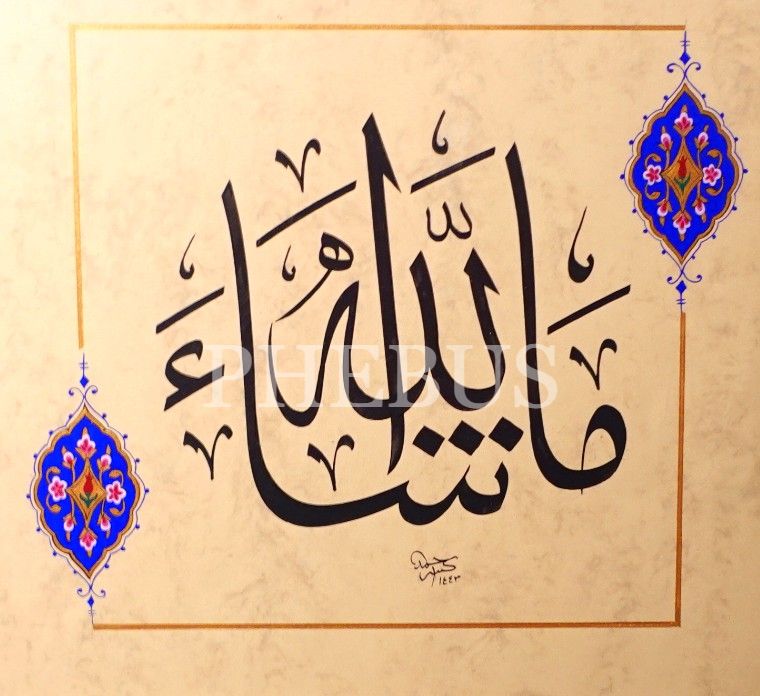 مَا شَاءَ اللّٰهُ
PHEBUS
١٤٤٣